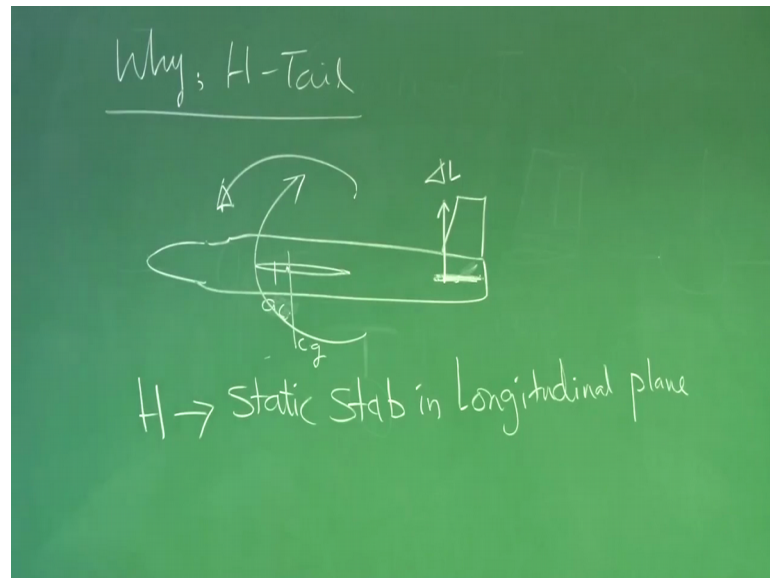 Why, H-Tail
ΔL
ac
cg
H → Static Stab in Longitudinal plane